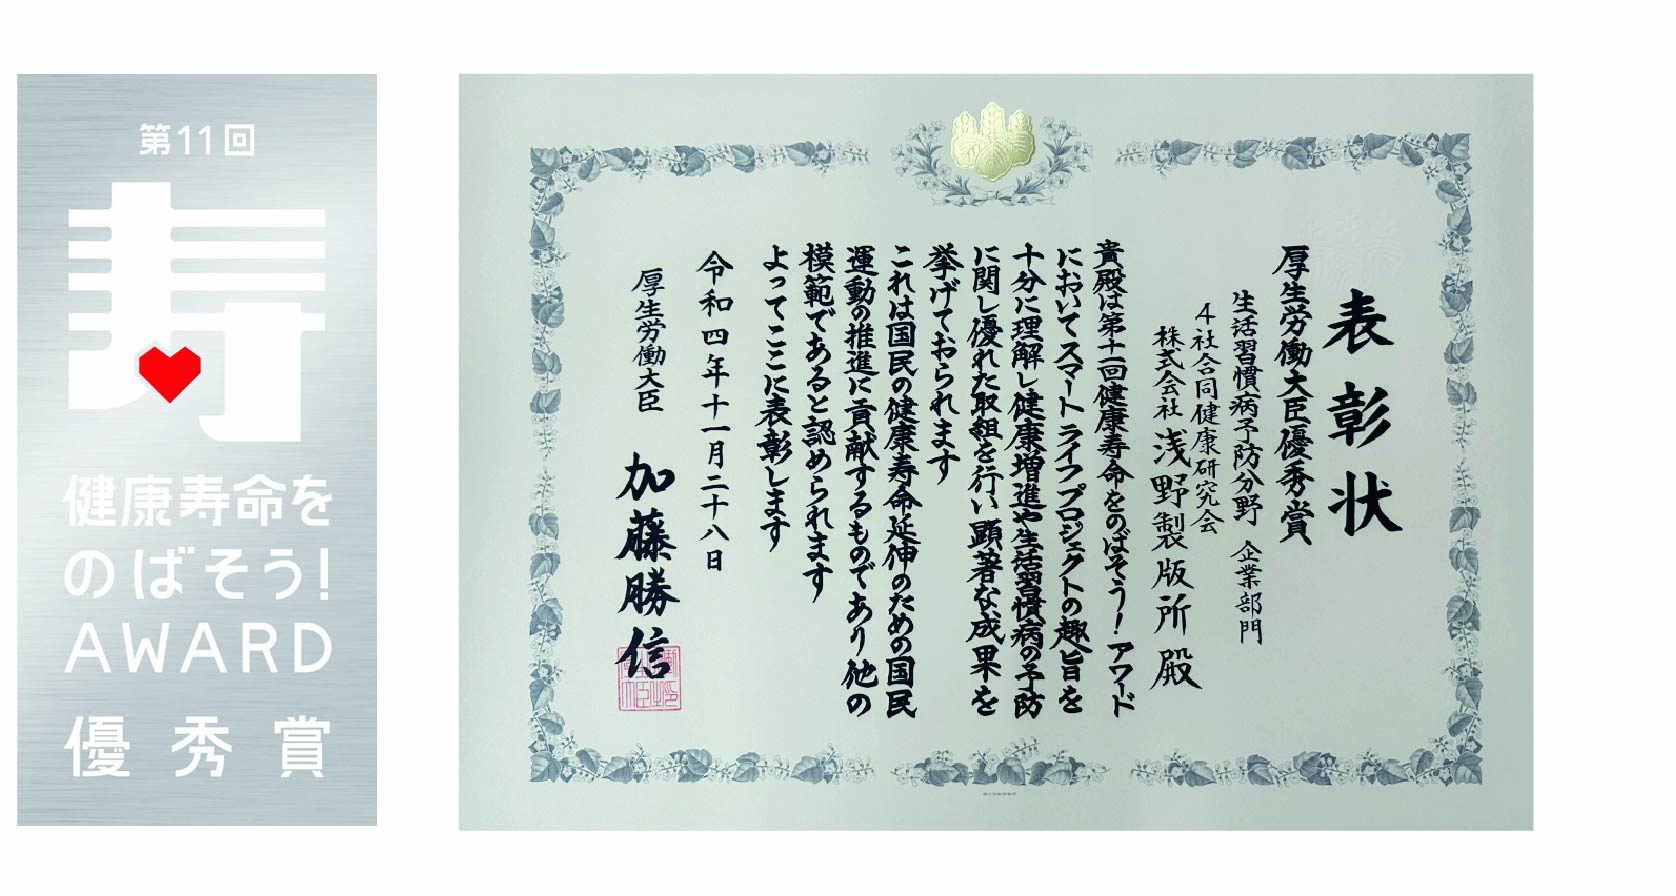 第11回
寿
健康寿命を
のばそう!
AWARD
優秀賞
表彰状
厚生労働大臣優秀賞
生活習慣病予防分野 企業部門
4社合同健康研究会
株式会社 浅野製版所 殿
貴殿は第十一回健康寿命をのばそう!アワード
においてスマートライフプロジェクトの趣旨を
十分に理解し健康増進や生活習慣病の予防
に関し優れた取組を行い顕著な成果を
挙げておられます
これは国民の健康寿命延伸のための国民
運動の推進に貢献するものであり他の
模範であると認められます
よってここに表彰します
令和四年十一月二十八日
厚生労働大臣 加藤勝信